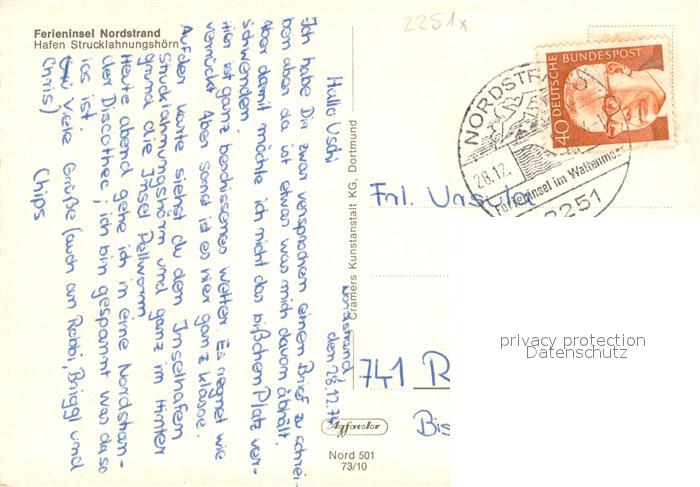 Ferieninsel Nordstrand
Hafen Strucklahnungshörn
2251
Nordstrand,
den 28.12.
Hallo Uschi
Ich habe Dir zwar versprochen einen Brief zu schrei-
ben aber da ist etwas was mich davon abhält.
Aber damit möchte ich nicht das bißchen Platz ver-
schwenden.
Hier ist ganz beschissenes Wetter. Es regnet wie
verrückt. Aber sonst ist es hier ganz klasse.
Auf der Karte siehst du den Inselhafen
Strucklahnungshörn und ganz im Hinter
grund die Insel Pellworm
Heute abend gehe ich in eine Nordstran-
der Discothec; ich bin gespannt was da so
los ist.
Viele Grüße (auch an Robbi, Briggl und
Chris)
Chips
Cramers Kunstanstalt KG, Dortmund
DEUTSCHE BUNDESPOST
40
NORDSTRAND
28.12.
Ferieninsel im Wattenmeer
2251
Frl. Ursula
741 R
Bis
privacy protection
Datenschutz
Agfacolor
Nord 501
73/10